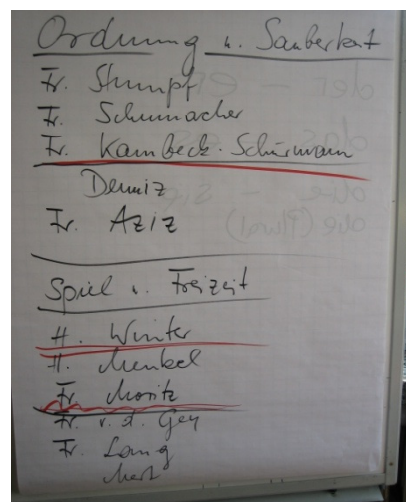 Ordnung u. Sauberkeit
Fr. Stumpf
Fr. Schumacher
Fr. Kambeck-Schürmann
Deniz
Fr. Aziz
Spiel u. Freizeit
H. Winter
H. Menkel
Fr. Moritz
Fr. v. d. Gey
Fr. Lang
Mert